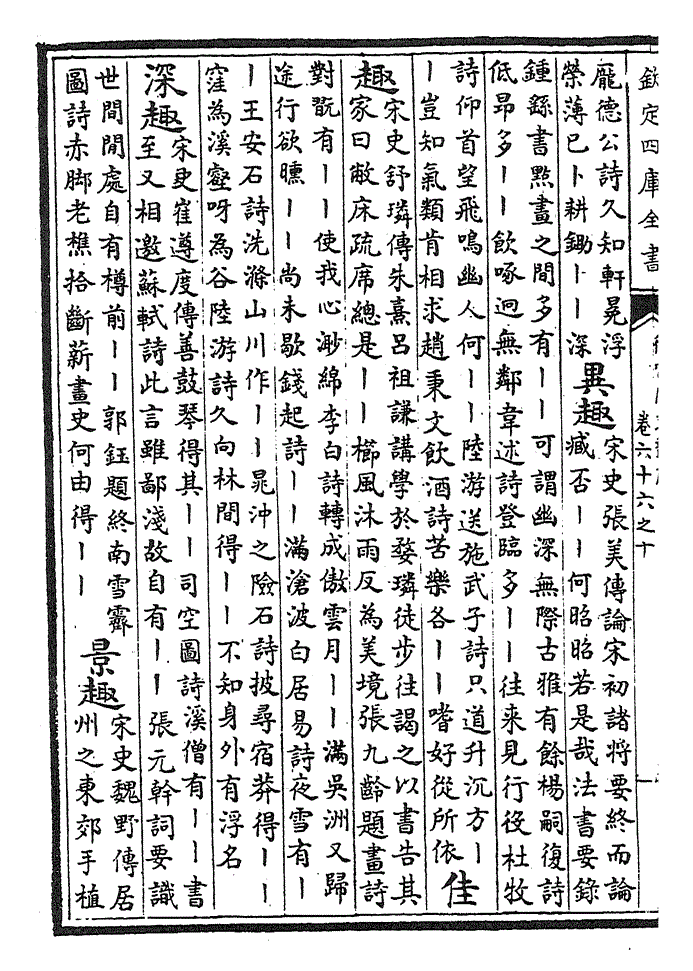 欽定四庫全書
卷六十六之十
龎德公詩久知軒冕浮
榮薄已卜耕鋤丨丨深
異趣
宋史張美傳論宋初諸將要終而論
臧否丨丨何昭昭若是哉法書要錄
鍾繇書㸃畫之間多有丨丨可謂幽深無際古雅有餘楊嗣復詩
低昻多丨丨飲啄迥無鄰韋述詩登臨多丨丨往來見行役杜牧
詩仰首望飛鳴幽人何丨丨陸游送施武子詩只道升沉方丨
丨豈知氣類肯相求趙秉文飲酒詩苦樂各丨丨嗜好從所依
佳
趣
宋史舒璘傳朱熹呂祖謙講學於婺璘徒步往謁之以書告其
家曰敝床疏席總是丨丨櫛風沐雨反為美境張九齡題畫詩
對翫有丨丨使我心渺綿李白詩轉成傲雲月丨丨滿吳洲又歸
途行欲曛丨丨尚未歇錢起詩丨丨滿滄波白居易詩夜雪有丨
丨王安石詩洗滌山川作丨丨晁沖之險石詩披尋宿莽得丨丨
窪為溪壑呀為谷陸游詩久向林間得丨丨不知身外有浮名
深趣
宋史崔遵度傳善鼓琴得其丨丨司空圖詩溪僧有丨丨書
至又相邀蘇軾詩此言雖鄙淺故自有丨丨張元幹詞要識
世間閒處自有樽前丨丨郭鈺題終南雪霽
圖詩赤脚老樵拾斷薪畫史何由得丨丨
景趣
宋史魏野傳居
州之東郊手植